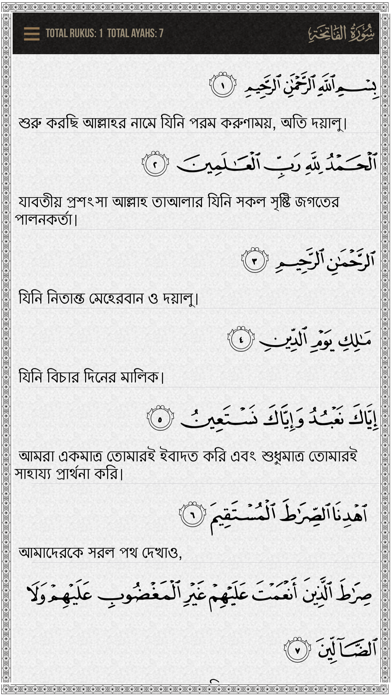 TOTAL RUKUS: 1 TOTAL AYAHS: 7
سُورَةُ الْفَاتِحَةِ
بِسْمِ اللَّهِ الرَّحْمَٰنِ الرَّحِيمِ ١
শুরু করছি আল্লাহর নামে যিনি পরম করুণাময়, অতি দয়ালু।
الْحَمْدُ لِلَّهِ رَبِّ الْعَالَمِينَ ٢
যাবতীয় প্রশংসা আল্লাহ তাআলার যিনি সকল সৃষ্টি জগতের
পালনকর্তা।
الرَّحْمَٰنِ الرَّحِيمِ ٣
যিনি নিতান্ত মেহেরবান ও দয়ালু।
مَالِكِ يَوْمِ الدِّينِ ٤
যিনি বিচার দিনের মালিক।
إِيَّاكَ نَعْبُدُ وَإِيَّاكَ نَسْتَعِينُ ٥
আমরা একমাত্র তোমারই ইবাদত করি এবং শুধুমাত্র তোমারই
সাহায্য প্রার্থনা করি।
اهْدِنَا الصِّرَاطَ الْمُسْتَقِيمَ ٦
আমাদেরকে সরল পথ দেখাও,
صِرَاطَ الَّذِينَ أَنْعَمْتَ عَلَيْهِمْ غَيْرِ الْمَغْضُوبِ عَلَيْهِمْ وَلَا
الضَّالِّينَ ٧